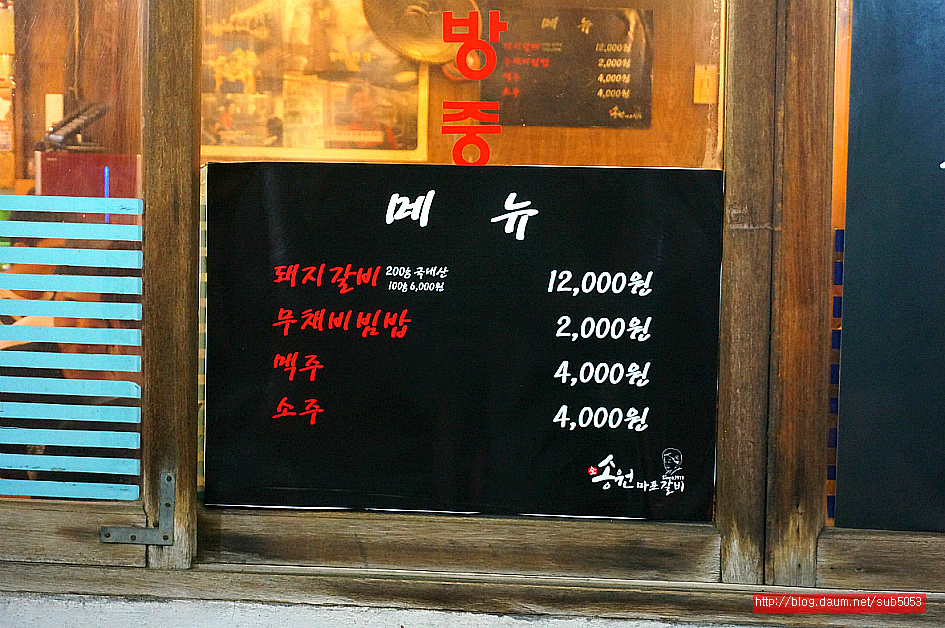 방
중
메 뉴
돼지갈비 12,000원
무채비빔밥 2,000원
맥주 4,000원
소주 4,000원
송원 마포갈비
메 뉴
돼지갈비 200g 국내산 12,000원
100g 6,000원
무채비빔밥 2,000원
맥주 4,000원
소주 4,000원
송원 마포갈비
http://blog.daum.net/sub5053